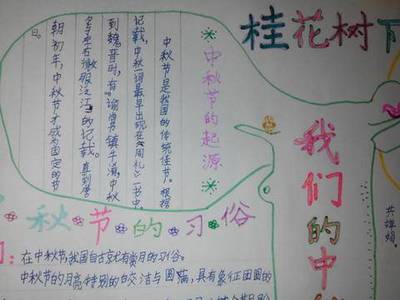 桂花树下
中秋节的起源
中秋节是我国的传统佳节。根据
记载,中秋一词最早出现在《周礼》一书中。
到魏晋时,有“谕尚书镇牛渚,中秋
夕与左右微服泛江”的记载。直到唐
朝初年,中秋节才成为固定的节
日。
我们的中
共婵娟。
秋节的习俗
:在中秋节,我国自古就有赏月的习俗。
中秋节的月亮特别的皎洁与圆满,具有象征团圆的